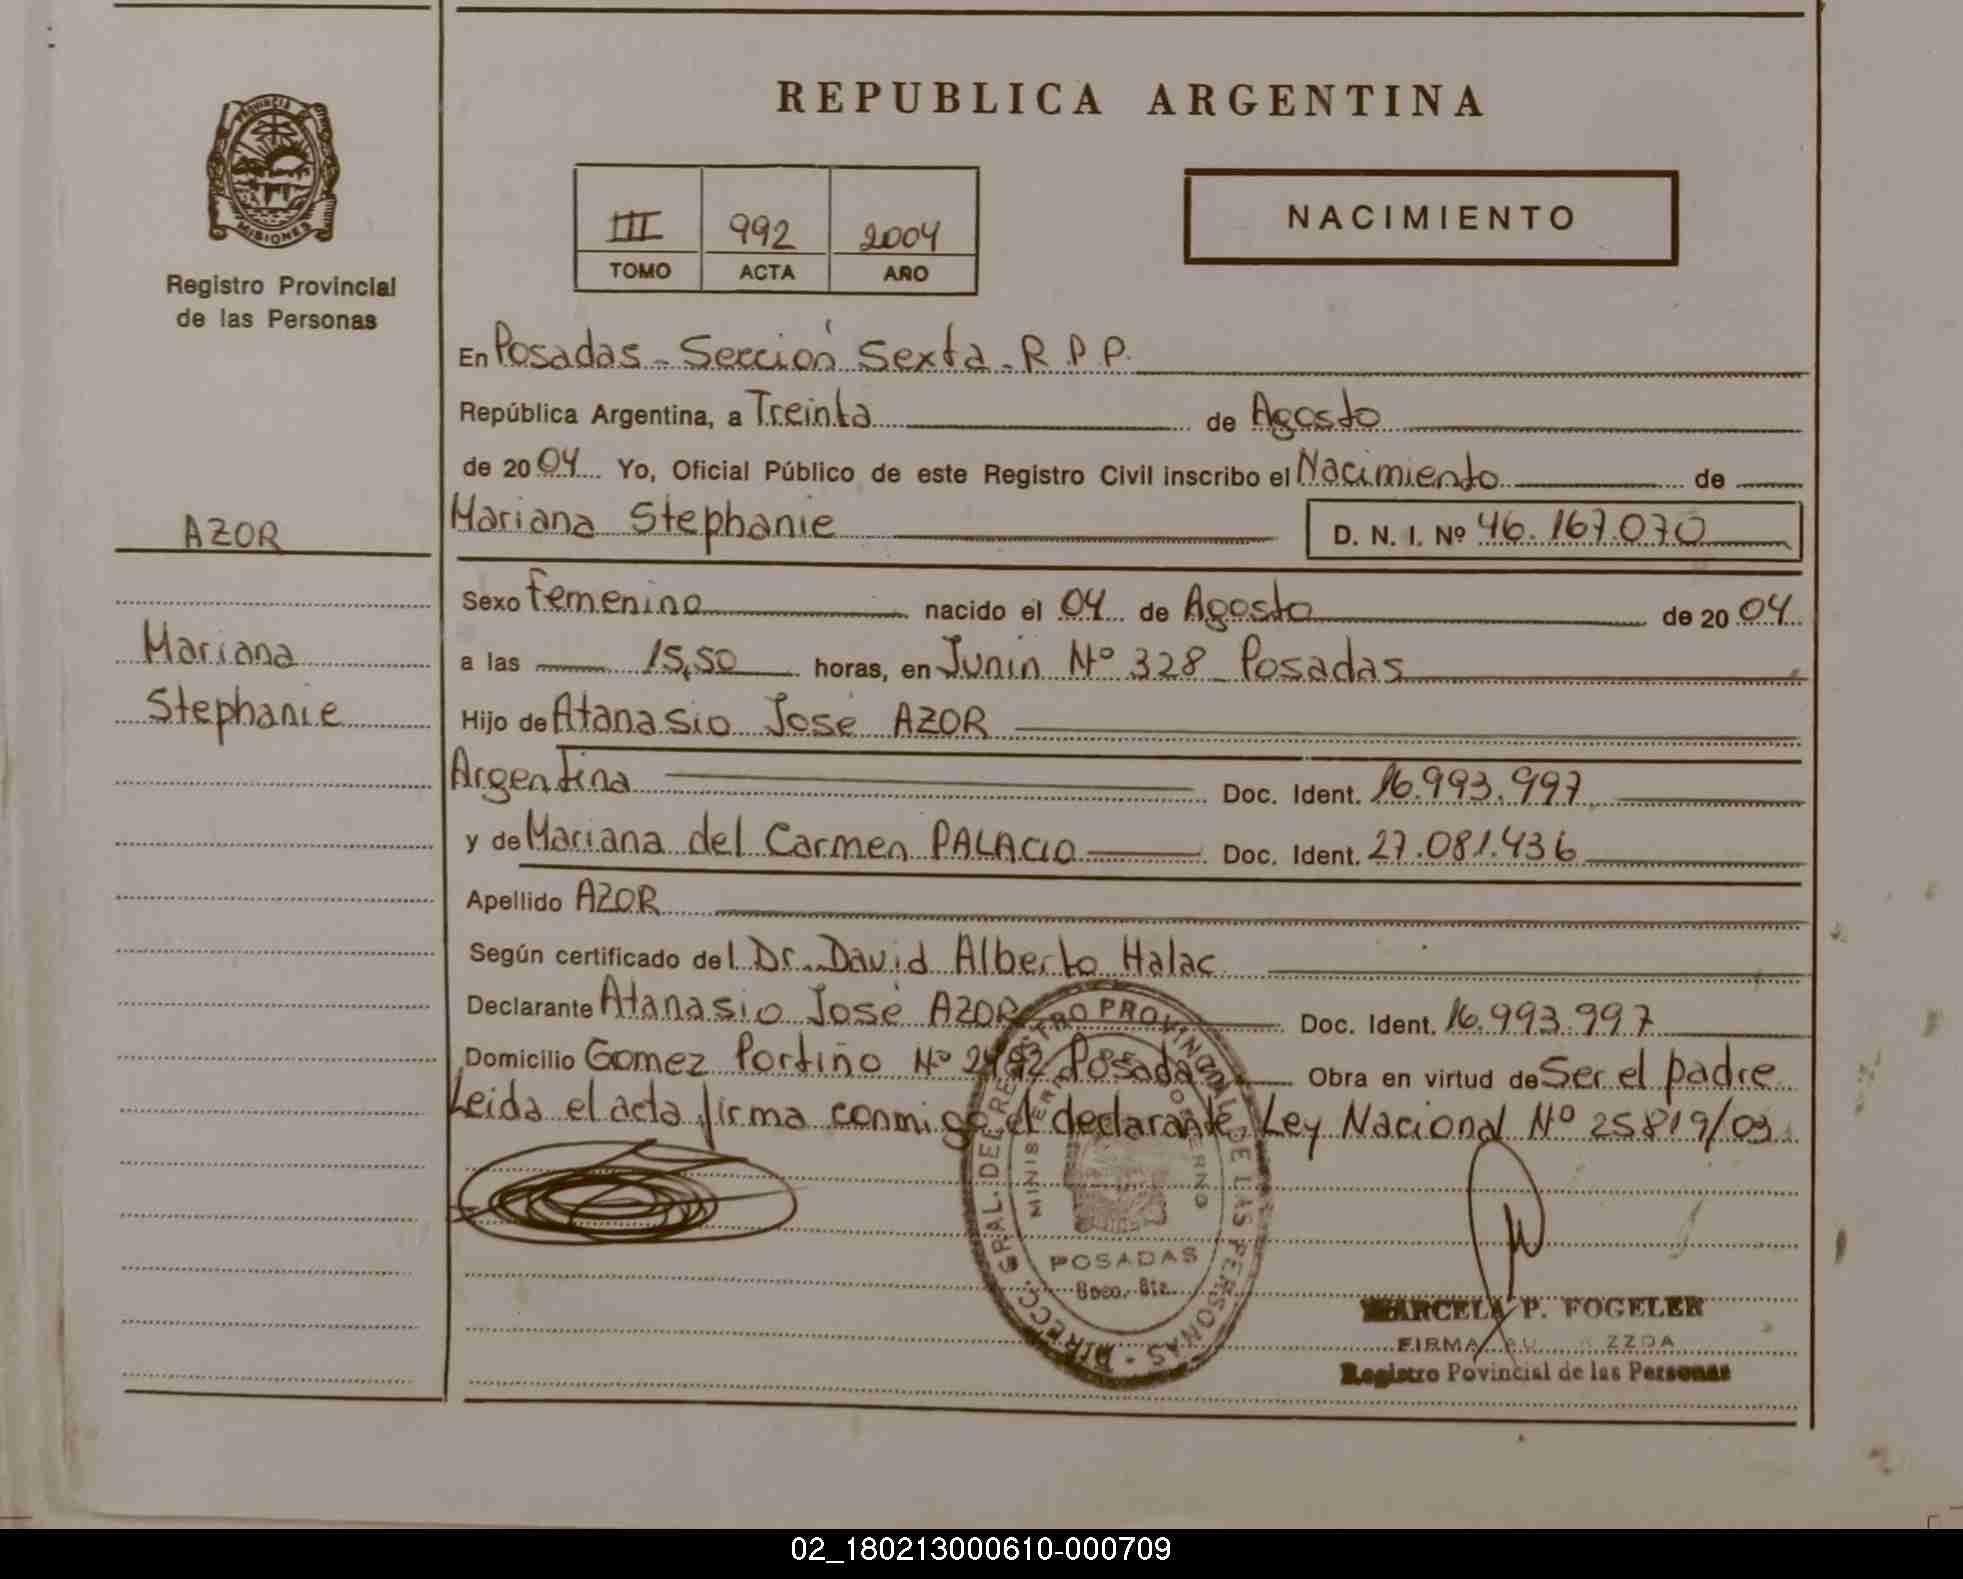 REPUBLICA ARGENTINA
PROVINCIA
MISIONES
Registro Provincial
de las Personas
III 992 2004
TOMO ACTA AÑO
NACIMIENTO
En Posadas - Sección Sexta - R.P.P.
República Argentina, a Treinta de Agosto
de 2004 Yo, Oficial Público de este Registro Civil inscribo el Nacimiento de
AZOR
Mariana Stephanie D. N. I. Nº 46.167.070
Sexo Femenino nacido el 04 de Agosto de 2004
Mariana
Stephanie
a las 15,50 horas, en Junin Nº 328 Posadas
Hijo de Atanasio José AZOR
Argentina Doc. Ident. 16.993.997
y de Mariana del Carmen PALACIO Doc. Ident. 27.081.436
Apellido AZOR
Según certificado del Dr. David Alberto Halac
Declarante Atanasio José AZOR Doc. Ident. 16.993.997
Domicilio Gomez Portiño Nº Posadas Obra en virtud de Ser el padre
Leida el acta firma conmigo el declarante Ley Nacional Nº 25819/03
DIRECC. GRAL. DEL REGISTRO PROVINCIAL DE LAS PERSONAS
MINISTERIO GOBIERNO
POSADAS
Secc. 6ta.
MARCELA P. FOGELER
FIRMA
Registro Povincial de las Personas
02_180213000610-000709